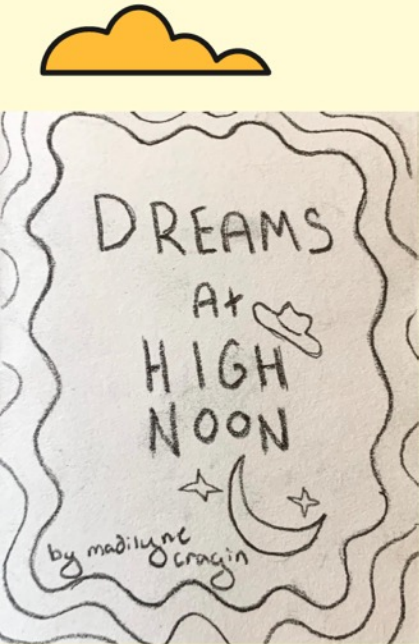 DREAMS
At
HIGH
NOON
by madilyne
cragin